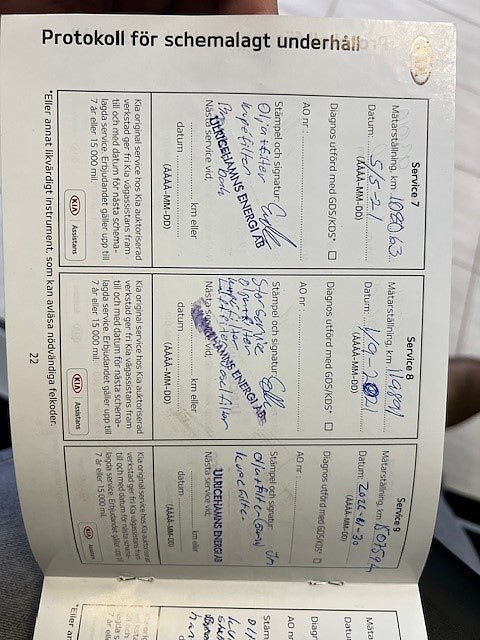 Protokoll för schemalagt underhåll
Service 7
Mätarställning, km 108063
Datum: 5/5-21
(ÅÅÅÅ-MM-DD)
Diagnos utförd med GDS/KDS*
AO nr :
Stämpel och signatur:
Oljat filter
kupefilter
ULRICEHAMNS ENERGI AB
Nästa service vid,
km eller
datum
(ÅÅÅÅ-MM-DD)
Kia original service hos Kia auktoriserad
verkstad ger fri Kia vägassistans fram
till och med datum för nästa schema-
lagda service. Erbjudandet gäller upp till
7 år eller 15 000 mil.
KIA Assistans
Service 8
Mätarställning, km 119891
Datum: 1/9-2021
(ÅÅÅÅ-MM-DD)
Diagnos utförd med GDS/KDS*
AO nr :
Stämpel och signatur:
Stor service
oljat filter
kupefilter
ULRICEHAMNS ENERGI AB
Nästa service vid,
km eller
datum
(ÅÅÅÅ-MM-DD)
Kia original service hos Kia auktoriserad
verkstad ger fri Kia vägassistans fram
till och med datum för nästa schema-
lagda service. Erbjudandet gäller upp till
7 år eller 15 000 mil.
KIA Assistans
Service 9
Mätarställning, km
Datum: 2022-01-30
(ÅÅÅÅ-MM-DD)
Diagnos utförd med GDS/KDS*
AO nr :
Stämpel och signatur:
kupefilter
ULRICEHAMNS ENERGI AB
Nästa service vid,
km eller
datum
(ÅÅÅÅ-MM-DD)
Kia original service hos Kia auktoriserad
verkstad ger fri Kia vägassistans fram
till och med datum för nästa schema-
lagda service. Erbjudandet gäller upp till
7 år eller 15 000 mil.
KIA Assistans
*Eller annat likvärdigt instrument, som kan avläsa nödvändiga felkoder.
22
Mätars
Datum:
Diagno
AO nr
Stäm
Näst
da
Kia
ver
till
lag
7 å
*Eller an